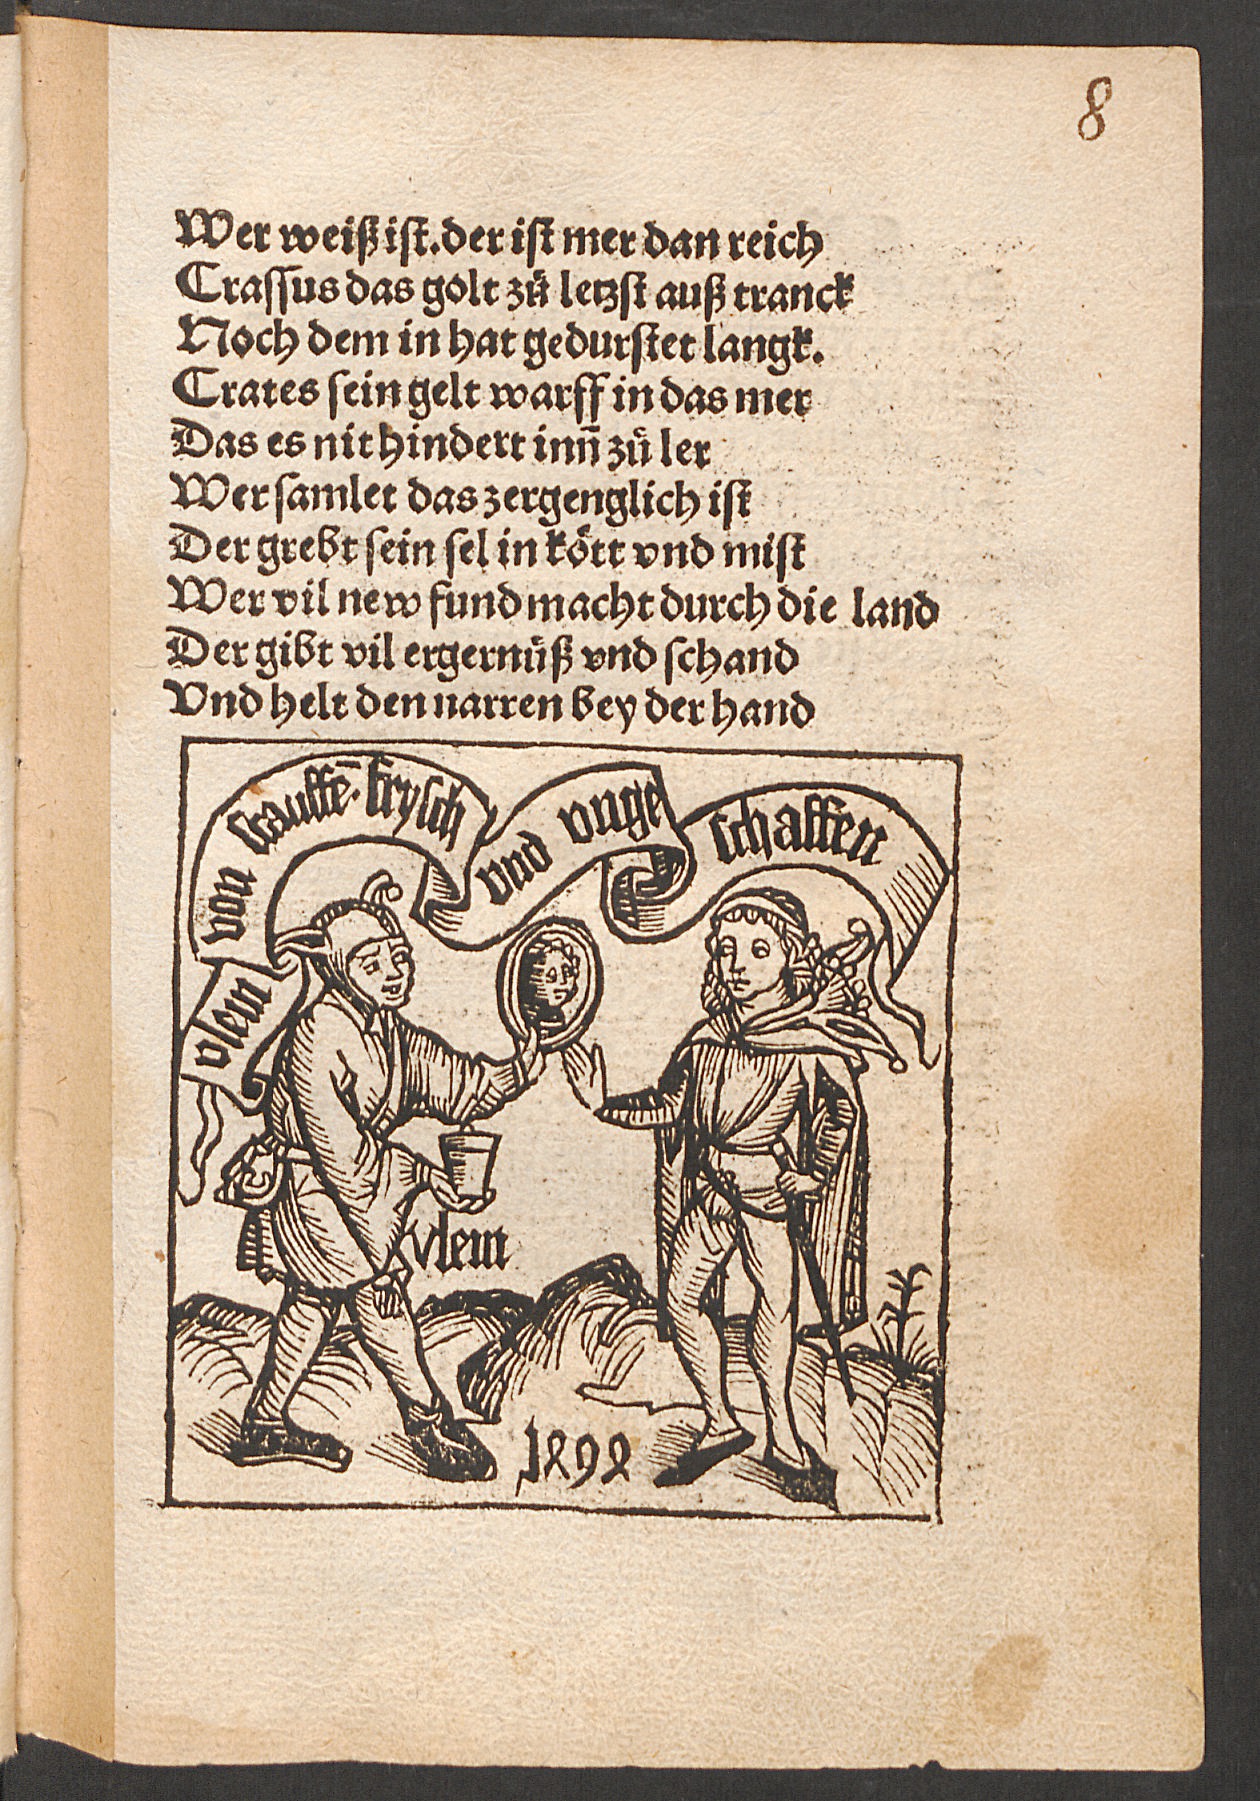 8
Wer weiß ist. der ist mer dan reich
Crassus das golt zů letzst auß tranck
Noch dem in hat gedurstet langk.
Crates sein gelt warff in das mer
Das es nit hindert inn̄ zů ler
Wer samlet das zergenglich ist
Der grebt sein sel in kött vnd mist
Wer vil new fund macht durch die land
Der gibt vil ergernüß vnd schand
Vnd helt den narren bey der hand
vlein von stauffē. frysch vnd vnge schaffen
vlein
1494